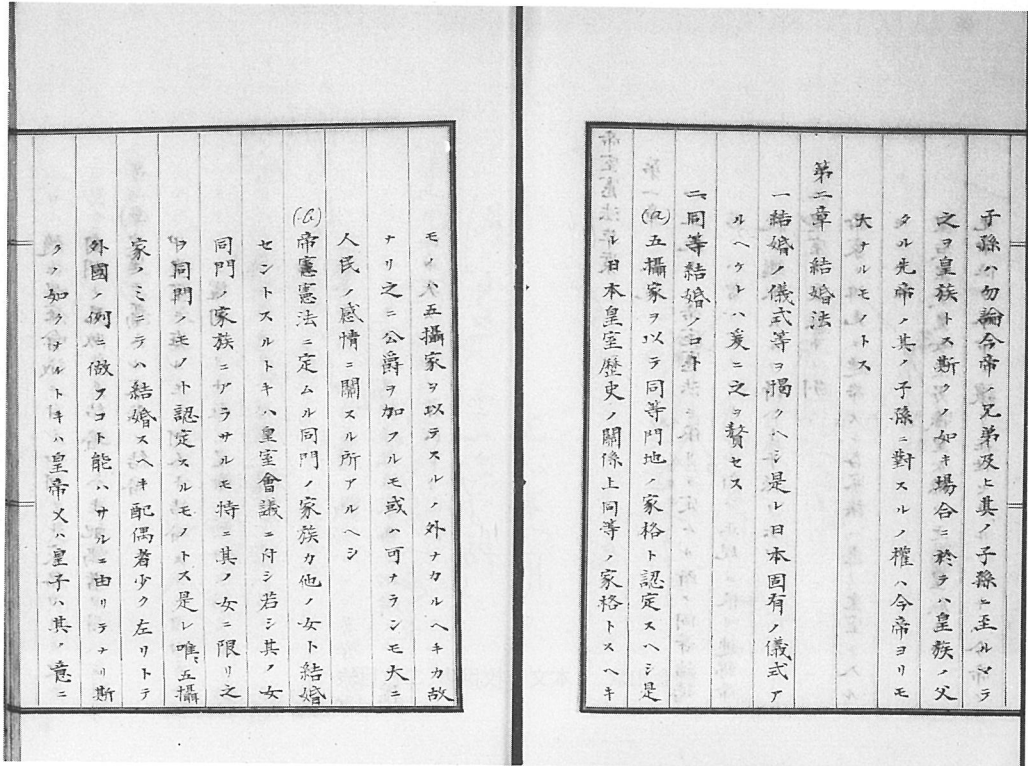 子孫ハ勿論今帝ノ兄弟及ヒ其ノ子孫ニ至ルマテ
之ヲ皇族トス斯クノ如キ場合ニ於テハ皇族ノ父
タル先帝ノ其ノ子孫ニ對スルノ權ハ今帝ヨリモ
大ナルモノトス
第二章 結婚法
一 結婚ノ儀式等ヲ掲クヘシ是レ日本固有ノ儀式ア
ルヘケレハ爰ニ之ヲ贅セス
二、同等結婚ノコト
(a) 五攝家ヲ以テ同等門地ノ家格ト認定スヘシ是
ル日本皇室歴史ノ關係上同等ノ家格トスヘキ
モノハ五攝家ヲ以テスルノ外ナカルヘキカ故
ナリ之ニ公爵ヲ加フルモ或ハ可ナランモ大ニ
人民ノ感情ニ關スル所アルヘシ
(b.) 帝憲憲法ニ定ムル同門ノ家族カ他ノ女ト結婚
セントスルトキハ皇室會議ニ付シ若シ其ノ女
同門ノ家族ニアラサルモ特ニ其ノ女ニ限リ之
ヲ同門ノモノト認定スルモノトス是レ唯、五攝
家ノミニテハ結婚スヘキ配偶者少ク左リトテ
外國ノ例ニ倣フコト能ハサルニ由リテナリ斯
クノ如クナルトキハ皇帝又ハ皇子ハ其ノ意ニ